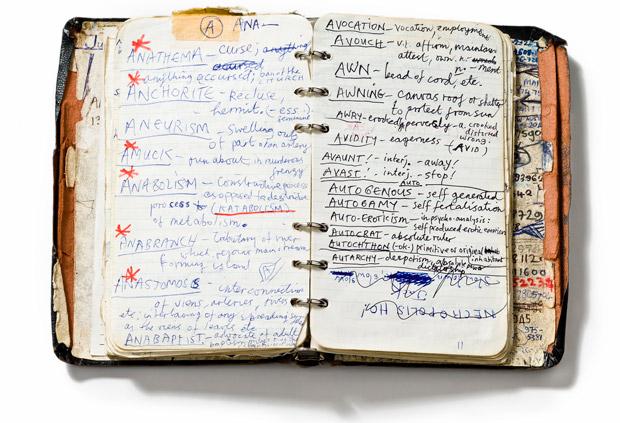 A ANA-
ANATHEMA - curse; anything
accursed
anything accursed; ban of the CHURCH
ANCHORITE - Recluse,
hermit. (-ess.) feminine
ANEURISM - swelling out
of part of an artery
AMUCK - run about in murderous
frenzy
ANABOLISM - Constructive process
as opposed to destructive
process (KATABOLISM)
of metabolism.
ANABRANCH - tributary of river
which rejoins main stream
forming island
ANASTOMOSIS - interconnection
of viens, arteries, rivers
etc; interlacing of any spreading
as the viens of leaves etc
ANABAPTIST - advocate of adult
AVOCATION - vocation, employment
AVOUCH - v.t. affirm, maintain
attest, own. n. - ment
AWN - head of corn, etc.
AWNING - canvas roof or shelter
to protect from sun
AWRY - crookedly, perversely - a. crooked
distorted
wrong.
AVIDITY - eagerness (AVID)
AVAUNT! - interj. - away!
AVAST! - interj. - stop!
AUTOGENOUS - self generated
AUTOGAMY - self fertalisation
AUTO-EROTICISM - in psycho-analysis:
self produced erotic emotion
AUTOCRAT - absolute ruler
AUTOCHTHON (-ok-) primitive or original
inhabitant
AUTARCHY - despotism, absolute power
dictatorship
NECROPOLIS
11